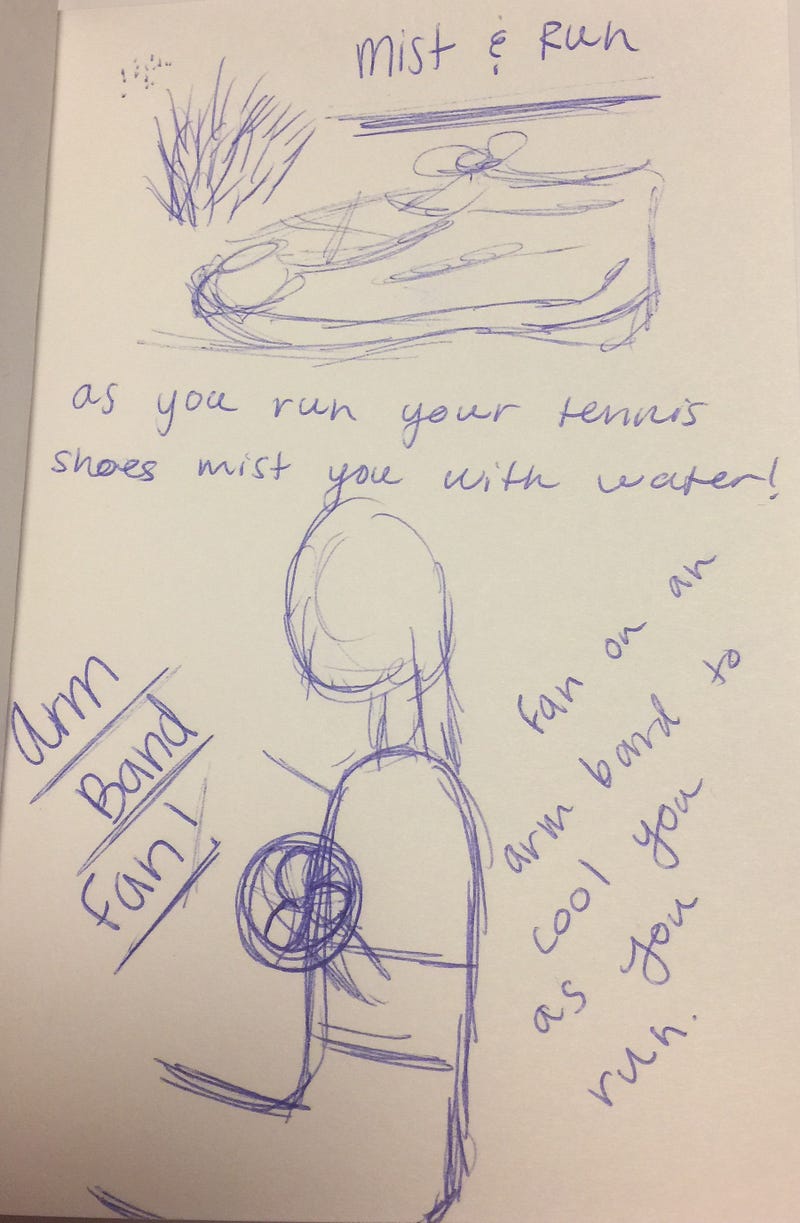 Mist & Run
as you run your tennis
shoes mist you with water!
Arm
Band
Fan!
Fan on an
arm band to
cool you
as you
run.